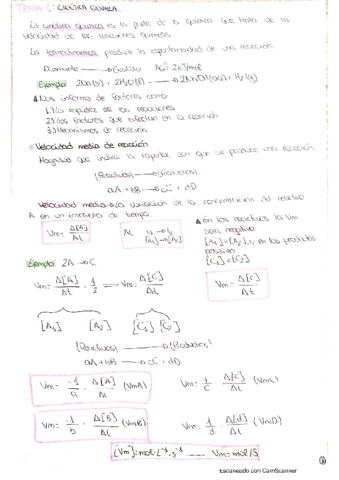 TEMA 1: CINÉTICA QUÍMICA.
La cinética química es la parte de la química que trata de la
velocidad de las reacciones químicas.
La termodinámica predice la espontaneidad de una reacción.
Diamante → Grafito ΔG=
Ejemplo: 2Na(s) + 2H₂O(l) → 2NaOH(aq) + H₂(g)
Nos informa de factores como:
1.) La rapidez de las reacciones
2.) Los factores que afectan en la reacción
3.) Mecanismos de reacción
Velocidad media de reacción
Magnitud que indica la rapidez con que se produce una reacción.
(Reactivos) → (Productos)
aA + bB → cC + dD
Velocidad media → La variación de la concentración del reactivo
A en un intervalo de tiempo.
Vm = Δ[A]/Δt
Δt
[A₁] → [A₂]
en los reactivos la Vm
será negativa.
[A₁] > [A₂], y en los productos
positiva
[C₁] < [C₂]
Ejemplo: 2A → C
Vm = Δ[A]/Δt · 1/2 = Vm = Δ[C]/Δt
Vm = Δ[C]/Δt
[A₁] [A₂] [C₁] [C₂]
(Reactivos) → (Productos)
aA + bB → cC + dD
Vm = -1/a · Δ[A]/Δt (VmA) Vm = 1/c · Δ[C]/Δt (VmC)
Vm = -1/b · Δ[B]/Δt (VmB) Vm = 1/d · Δ[d]/Δt (VmD)
[Vm] = mol·L⁻¹·s⁻¹ Vm = mol/S
Escaneado con CamScanner